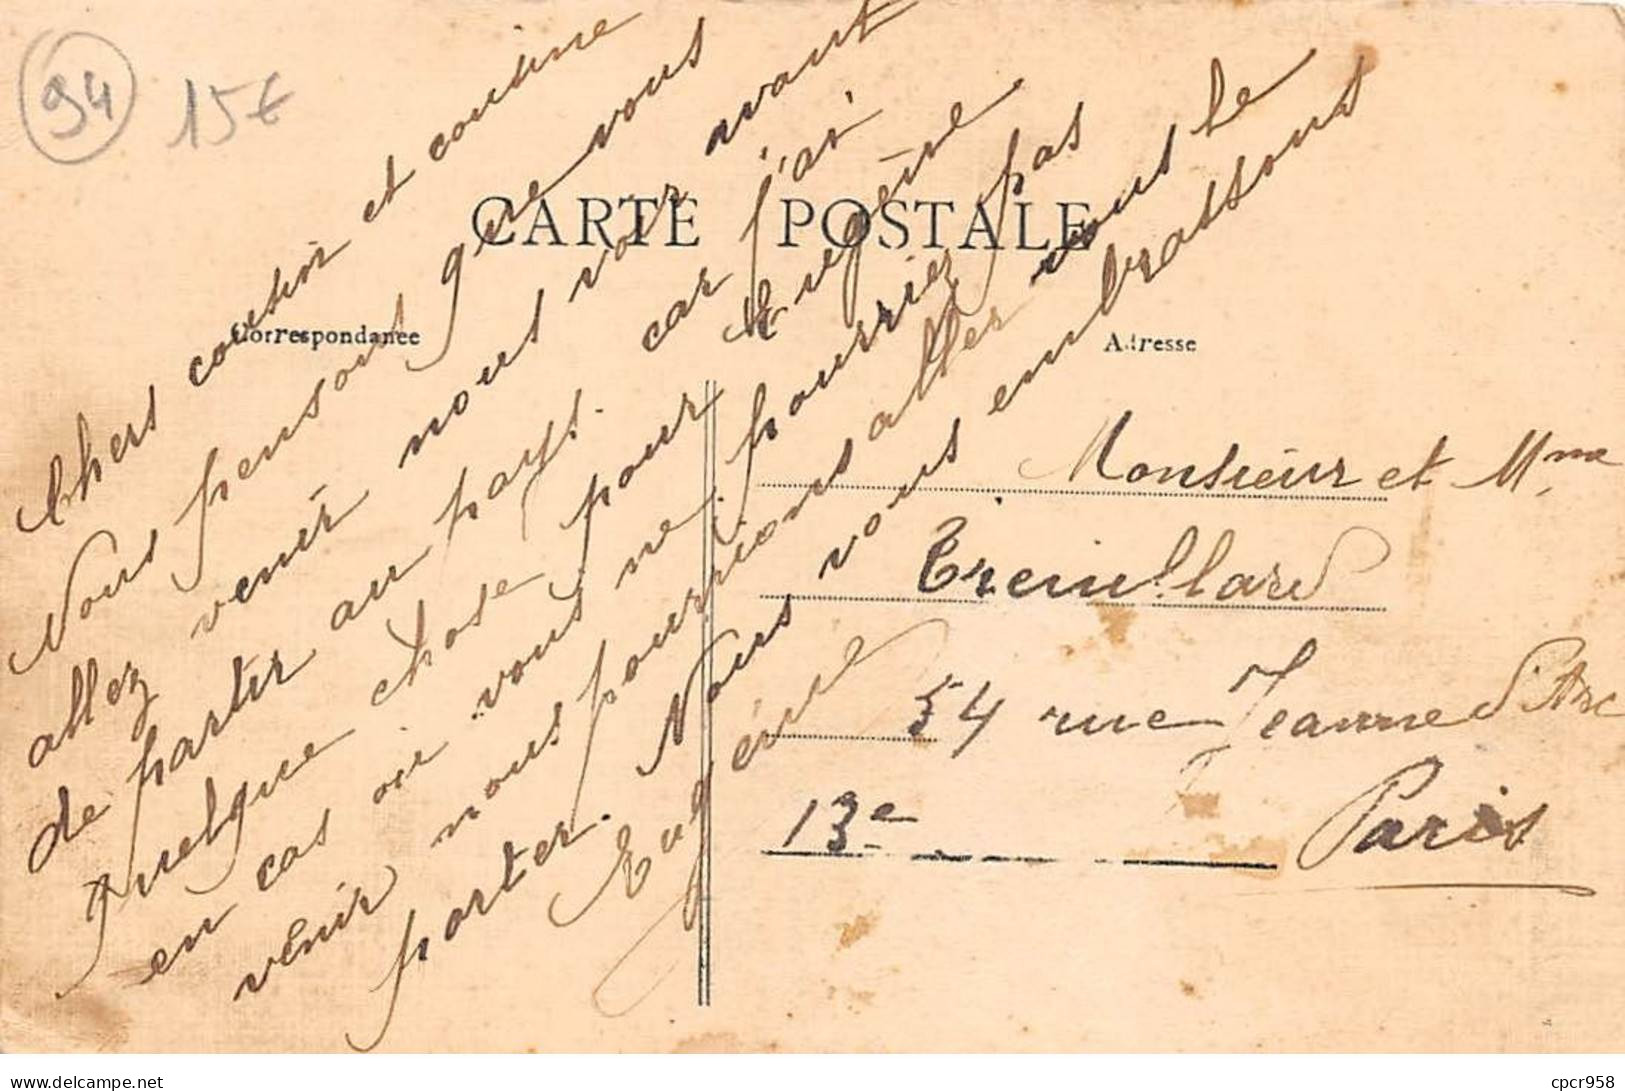 94
15€
CARTE POSTALE
Correspondance
Adresse
Chers cousin et cousine
Nous pensons que vous
allez venir nous voir avant
de partir au pays. car j'ai
quelque chose pour Eugène
en cas où vous ne pourriez pas
venir nous pourrions aller vous le
porter. Nous vous embrassons
Eugénie
Monsieur et Mme
Treuillard
54 rue Jeanne d'Arc
13e Paris
www.delcampe.net
cpcr958